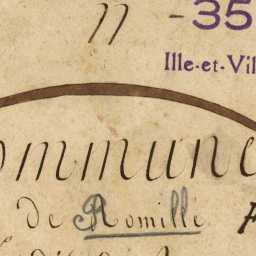 11 - 35
Ille-et-Vil
ommune
de Romillé